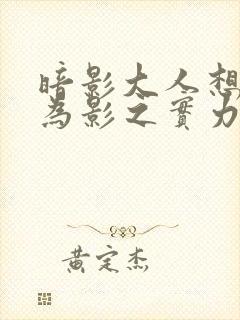 暗影大人想
為影之實力
黃定杰